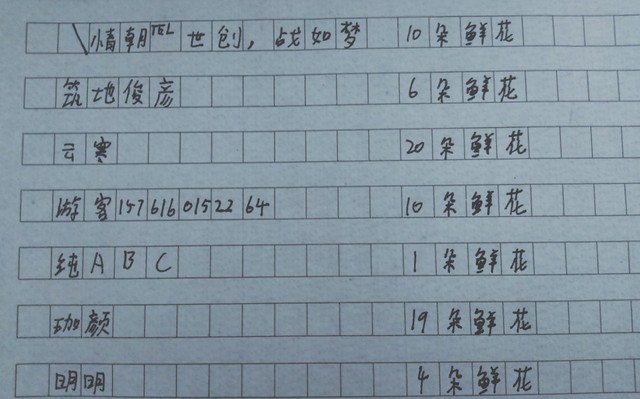 \情朝TEL世创，战如梦 10朵鲜花
筑地俊彦 6朵鲜花
云寒 20朵鲜花
游客1576160152264 10朵鲜花
纯ABC 1朵鲜花
珈颜 19朵鲜花
明明 4朵鲜花